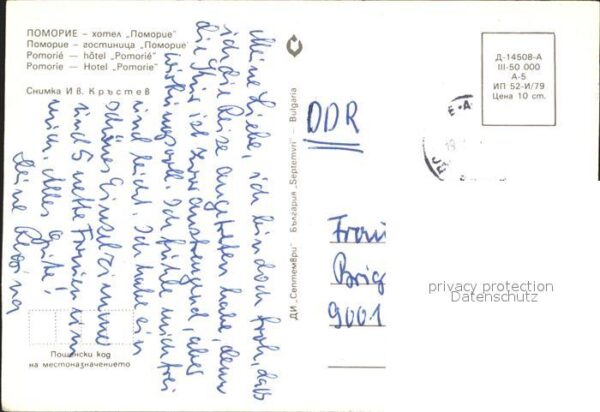 ПОМОРИЕ – хотел „Поморие"
Поморие – гостиница „Поморие"
Pomorié – hôtel „Pomorié"
Pomorie – Hotel „Pomorie"
Снимка Ив. Кръстев
Meine Liebe, ich bin doch froh, daß
ich die Reise angetreten habe, denn
die Kur ist zwar anstrengend, aber
wirkungsvoll. Ich fühle mich frei
und leicht. Ich habe ein
schönes Einzelzimmer
und 5 nette Frauen um
mich. Alles Gute!
Deine Regina
Пощенски код
на местоназначението
ДИ „Септември" – България „Septemvri" – Bulgaria
Д-14508-А
III-50 000
А-5
ИП 52-И/79
Цена 10 ст.
DDR
Frau
Brig
9001
privacy protection
Datenschutz